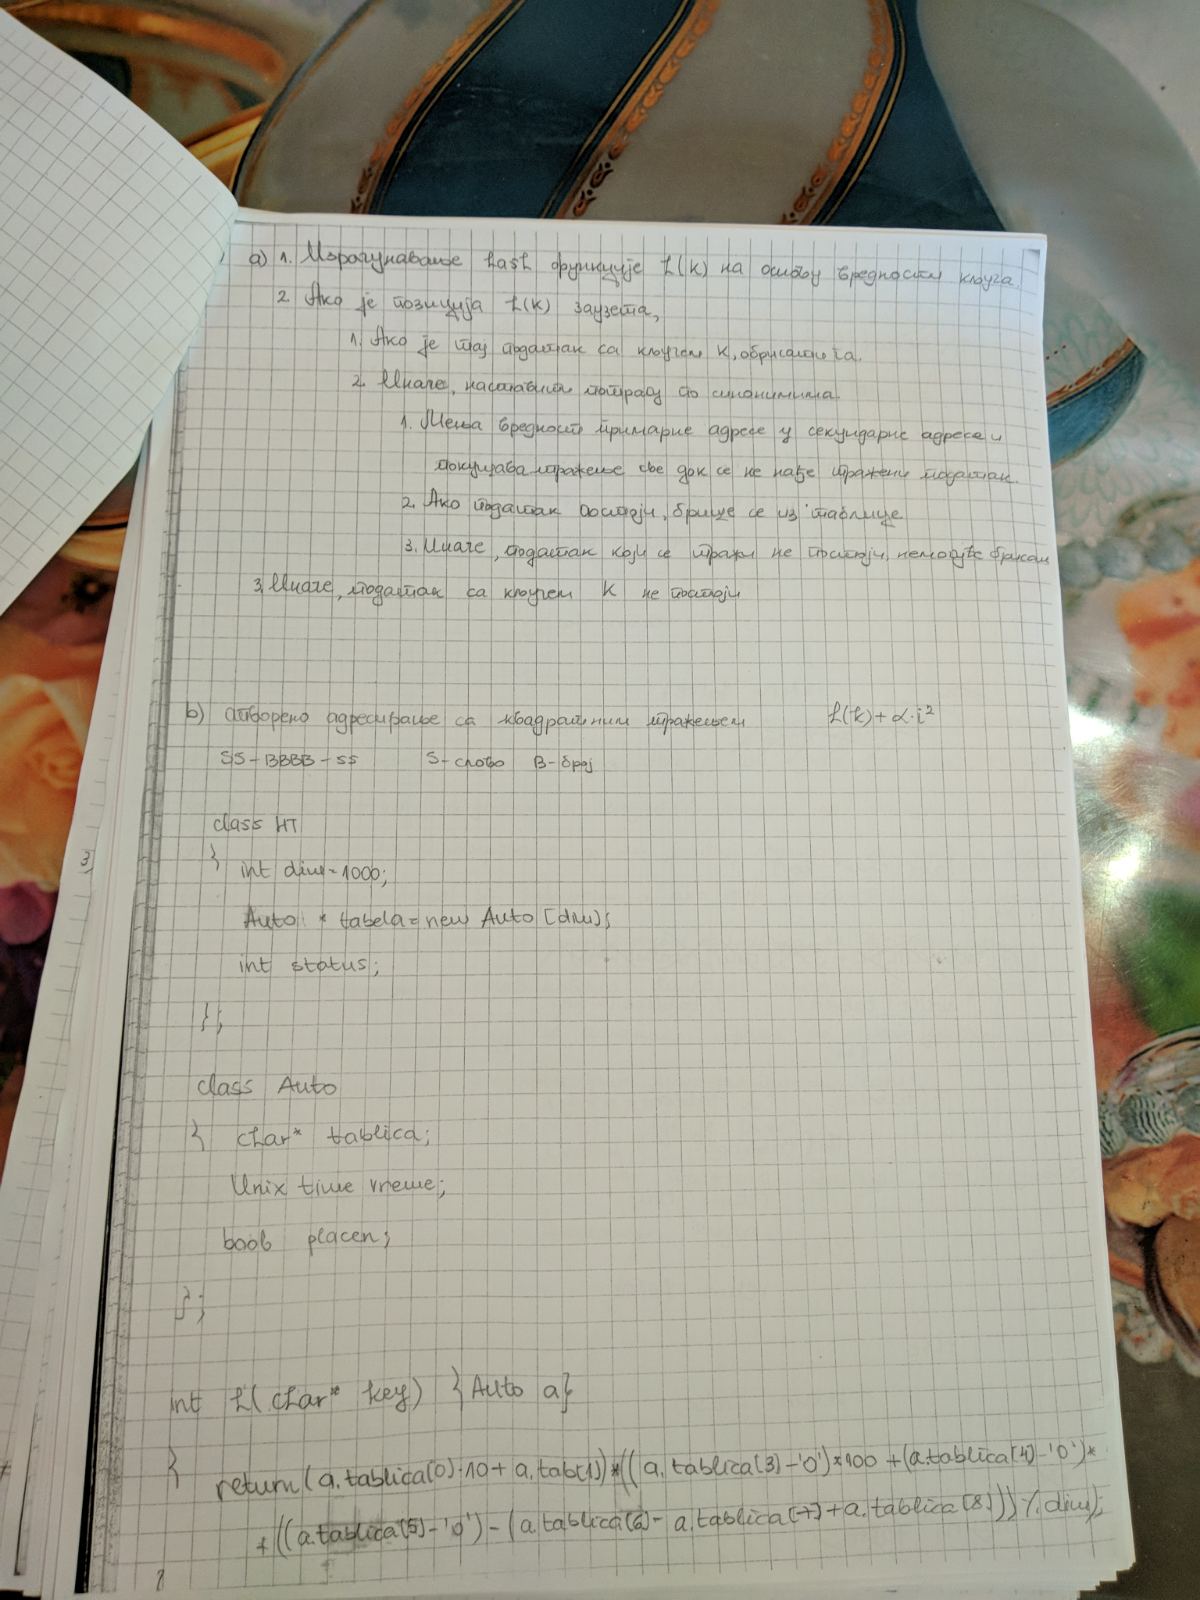 а) 1. Израчунавање hash функције h(k) на основу вредности кључа.
2. Ако је позиција h(k) заузета,
1. Ако је тај податак са кључем K, обрисати га.
2. Иначе, наставити потрагу по синонимима.
1. Мења вредност примарне адресе у секундарне адресе и
покушава тражење све док се не нађе тражени податак.
2. Ако податак постоји, брише се из таблице
3. Иначе, податак који се тражи не постоји, немогуће
3. Иначе, податак са кључем K не постоји
b) отворено адресирање са квадратним тражењем h(k) + α·i²
SS-BBBB-SS S-слово B-број
class HT
{ int dim=1000;
Auto * tabela = new Auto[dim];
int status;
};
class Auto
{ char* tablica;
Unix time vreme;
boob placen;
};
int h(char* key) {Auto a}
{
return (a.tablica[0]·10 + a.tab[1]) * ((a.tablica[3]-'0')*100 + (a.tablica[4]-'0')*
* ((a.tablica[5]-'0') - (a.tablica[6] - a.tablica[7] + a.tablica[8]))) % dim);
3